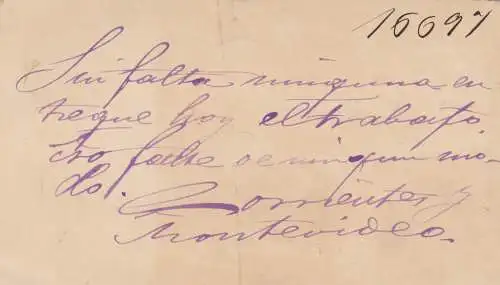 16697
Sin falta ninguna en
tregue hoy el trabajo.
No falte de ningun mo-
do.
Corrientes y
Montevideo.